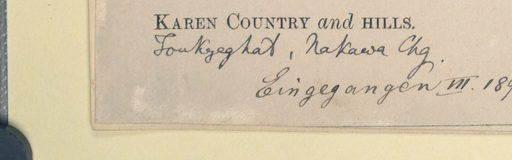 KAREN COUNTRY and HILLS.
Toukyeghat, Nakawa Chg.
Eingegangen III. 189